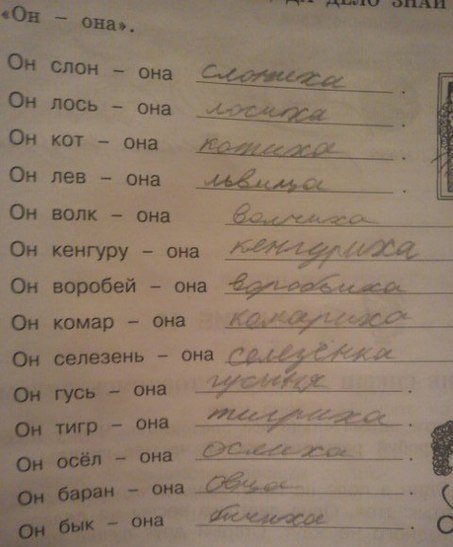 ДА ДЕЛО ЗНАЙ
«Он – она».
Он слон – она слониха.
Он лось – она лосиха.
Он кот – она котиха.
Он лев – она львица.
Он волк – она волчиха
Он кенгуру – она кенгуриха
Он воробей – она воробьиха
Он комар – она комариха
Он селезень – она селезёнка
Он гусь – она гусыня.
Он тигр – она тигриха.
Он осёл – она ослиха.
Он баран – она овца.
Он бык – она бичиха.